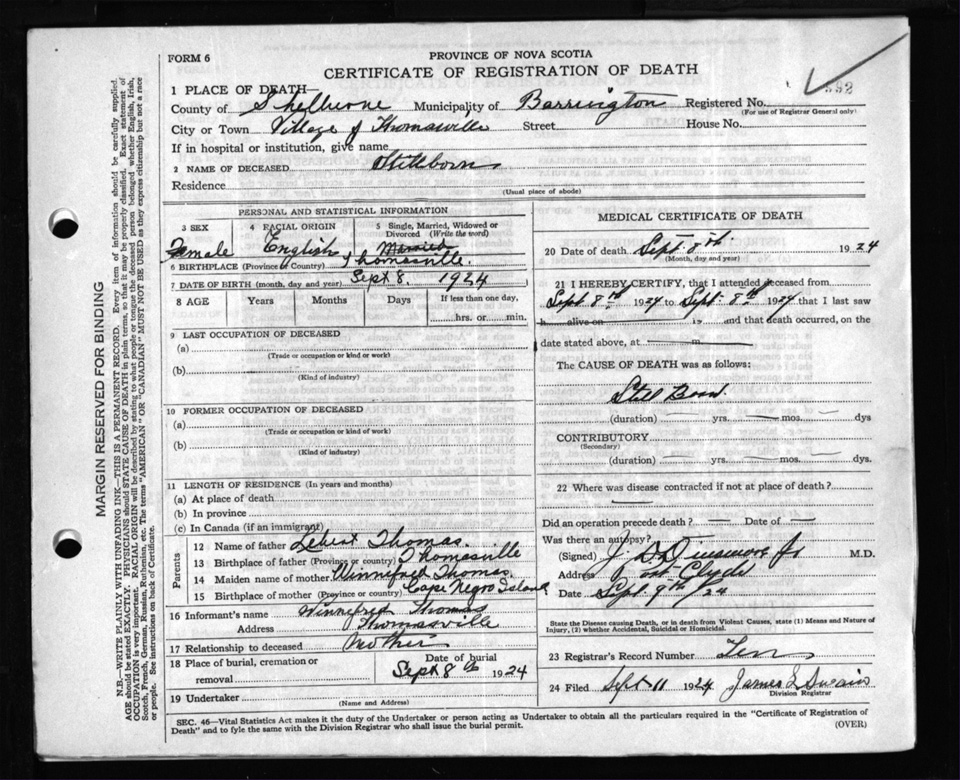 FORM 6
PROVINCE OF NOVA SCOTIA
CERTIFICATE OF REGISTRATION OF DEATH
1 PLACE OF DEATH—
County of Shelburne Municipality of Barrington Registered No.
(For use of Registrar General only)
City or Town Village of Thomasville Street House No.
If in hospital or institution, give name
2 NAME OF DECEASED Stillborn
Residence
(Usual place of abode)
PERSONAL AND STATISTICAL INFORMATION
3 SEX 4 RACIAL ORIGIN 5 Single, Married, Widowed or Divorced (Write the word)
Female English Married
6 BIRTHPLACE (Province or Country) Thomasville.
7 DATE OF BIRTH (month, day and year) Sept 8. 1924
8 AGE Years Months Days If less than one day,
hrs. or min.
9 LAST OCCUPATION OF DECEASED
(a)
(Trade or occupation or kind or work)
(b)
(Kind of industry)
10 FORMER OCCUPATION OF DECEASED
(a)
(Trade or occupation or kind of work)
(b)
(Kind of industry)
11 LENGTH OF RESIDENCE (In years and months)
(a) At place of death
(b) In province
(c) In Canada (if an immigrant)
Parents
12 Name of father Thomas.
13 Birthplace of father (Province or country) Thomasville
14 Maiden name of mother Winnifred Thomas.
15 Birthplace of mother (Province or country) Cape Negro Island
16 Informant's name Winnifred Thomas
Address Thomasville
17 Relationship to deceased Mother
18 Place of burial, cremation or removal
Date of burial
Sept 8th 1924
19 Undertaker
(Name and Address)
MEDICAL CERTIFICATE OF DEATH
20 Date of death Sept. 8th. 1924
(Month, day and year)
21 I HEREBY CERTIFY, that I attended deceased from
Sept 8th 1924 to Sept. 8th 1924 that I last saw
h alive on is and that death occurred, on the
date stated above, at m
The CAUSE OF DEATH was as follows:
Still Born.
(duration) yrs. mos. dys
CONTRIBUTORY
(Secondary)
(duration) yrs. mos. dys.
22 Where was disease contracted if not at place of death?
Did an operation precede death? — Date of —
Was there an autopsy?
(Signed) J. D. Dinsmore Jr M.D.
Address Port Clyde
Date Sept. 9th/24
State the Disease causing Death, or in death from Violent Causes, state (1) Means and Nature of
Injury, (2) whether Accidental, Suicidal or Homicidal.
23 Registrar's Record Number Ten
24 Filed Sept 11 1924 James Swain
Division Registrar
SEC. 46—Vital Statistics Act makes it the duty of the Undertaker or person acting as Undertaker to obtain all the particulars required in the "Certificate of Registration of
Death" and to fyle the same with the Division Registrar who shall issue the burial permit.
(OVER)
MARGIN RESERVED FOR BINDING
N.B.—WRITE PLAINLY WITH UNFADING INK—THIS IS A PERMANENT RECORD. Every item of information should be carefully supplied.
AGE should be stated EXACTLY. PHYSICIANS should STATE CAUSE OF DEATH in plain terms, so that it may be properly classified. Exact statement of
OCCUPATION is very important. RACIAL ORIGIN will be described by stating to what people or tongue the deceased person belonged whether English, Irish,
Scotch, French, German, Russian, Ruthenian, etc. The terms "AMERICAN" OR "CANADIAN" MUST NOT BE USED as they express citizenship but not a race
or people. See instructions on back of Certificate.